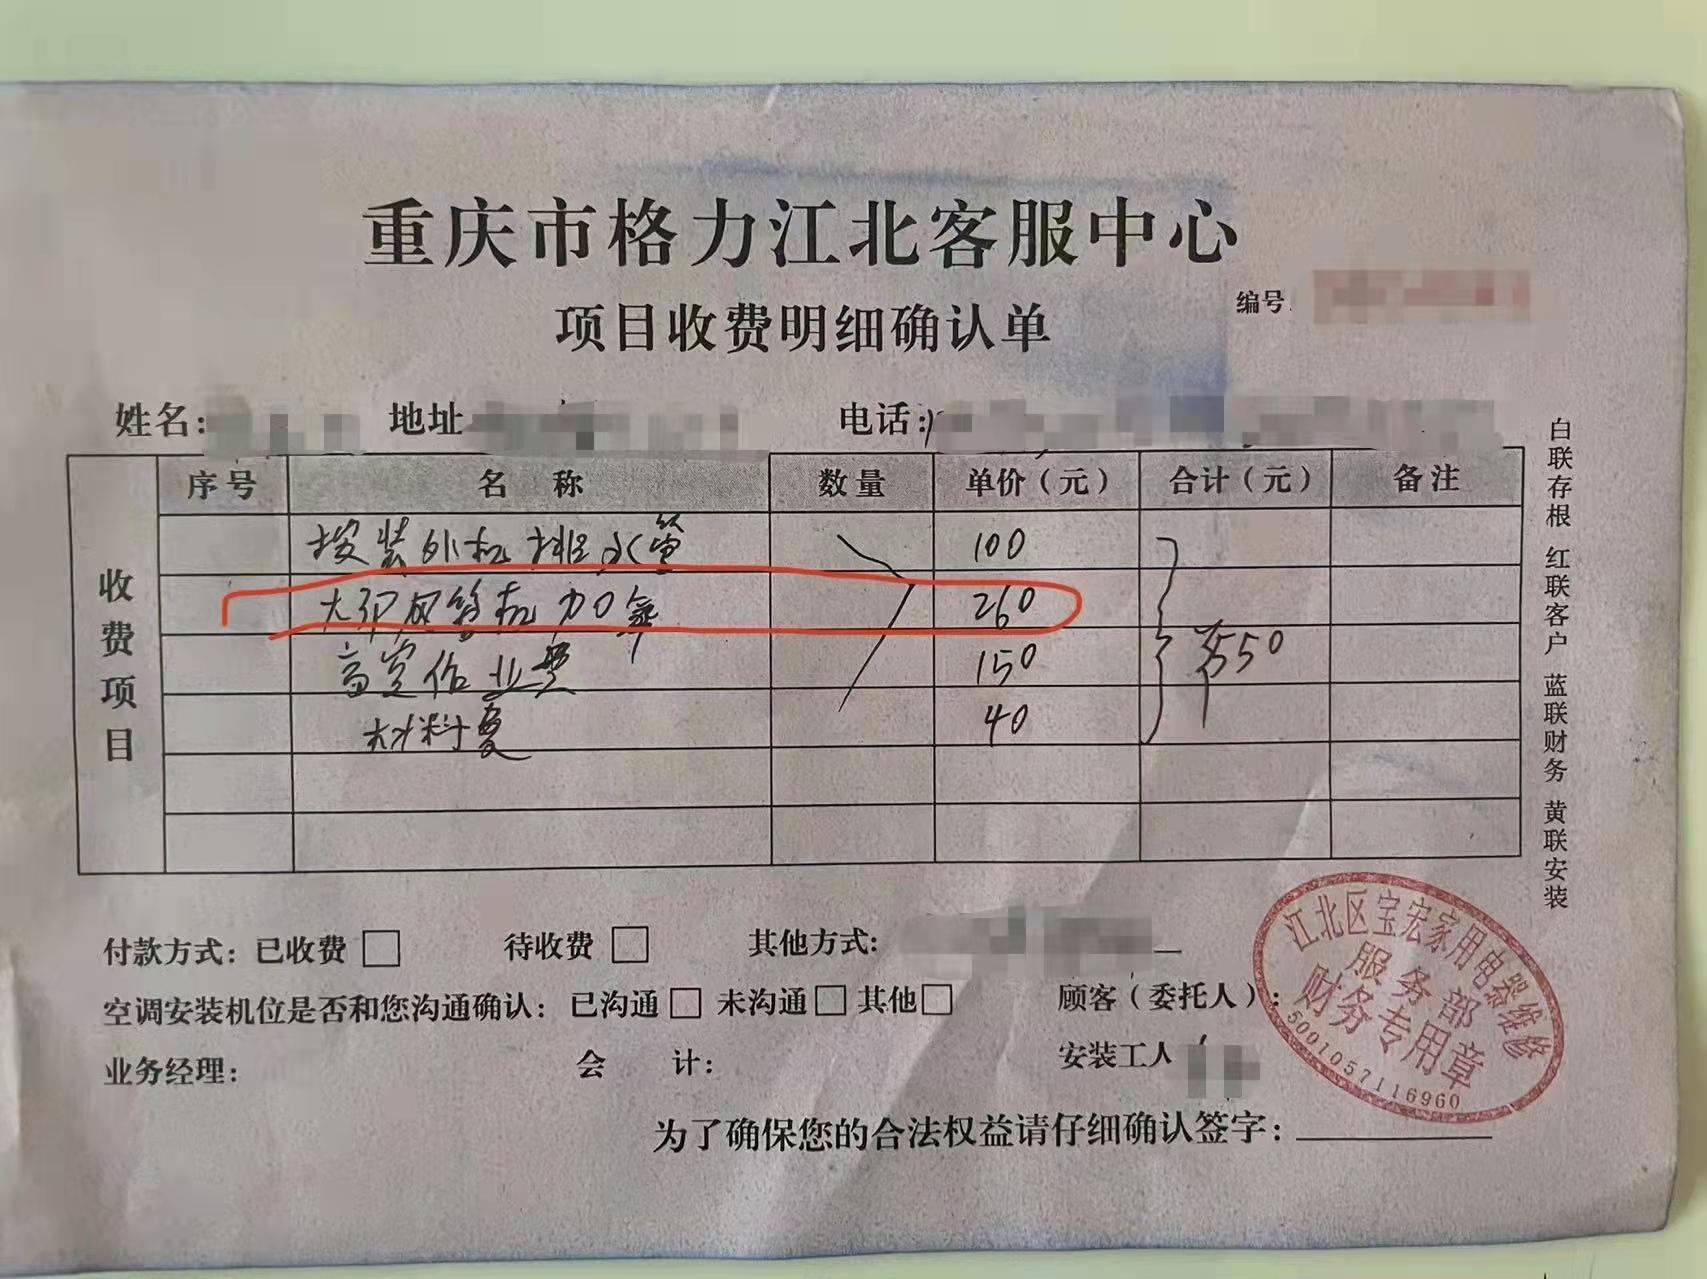 重庆市格力江北客服中心
项目收费明细确认单
编号:
姓名: 地址 电话:
收费项目
序号 名称 数量 单价（元） 合计（元） 备注
按装外机排水管 100
大1P风管机加氟 260
高空作业费 150
材料费 40
550
白联存根 红联客户 蓝联财务 黄联安装
付款方式：已收费□ 待收费□ 其他方式:
空调安装机位是否和您沟通确认：已沟通□ 未沟通□ 其他□ 顾客（委托人）：
业务经理: 会计: 安装工人
为了确保您的合法权益请仔细确认签字：
江北区宝宏家用电器维修
服务部
财务专用章
5001057116960